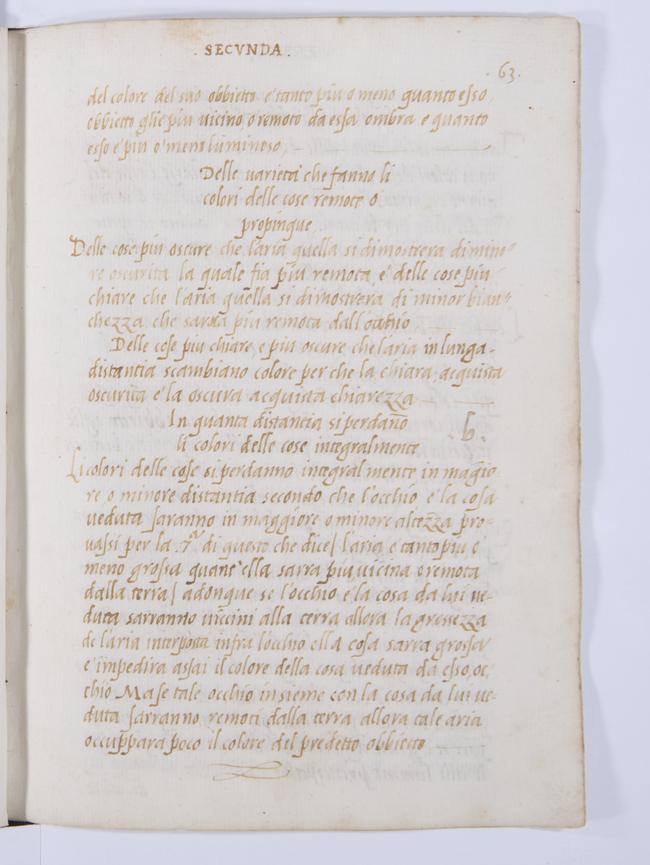 . SECVNDA .
. 63 .
del colore del suo obbietto e tanto piu o meno quanto esso
obbietto glie piu vicino o remoto da essa ombra e quanto
esso e piu o meno luminoso,
Delle varieta che fanno li
colori delle cose remote o
propinque
Delle cose piu oscure che l'aria quella si dimostrera di mino=
re oscurita la quale fia piu remota, e delle cose piu
chiare che l'aria quella si dimostrera di minor bian=
chezza che sarra piu remota dall'occhio
Delle cose piu chiare, e piu oscure che l'aria in lunga
distantia scambiano colore per che la chiara acquista
oscurita e la oscura acquista chiarezza
In quanta distantia si perdano
li colori delle cose integralmente
Li colori delle cose si perdanno integralmente in magio=
re o minore distantia secondo che l'occhio e la cosa
veduta saranno in maggiore o minore altezza pro=
vassi per la 7a di questo che dice / l'aria e tanto piu o
meno grossa quant'ella sarra piu vicina o remota
dalla terra / adonque se l'occhio e la cosa da lui ve=
duta sarranno viccini alla terra allora la grossezza
de l'aria interposta infra l'occhio ella cosa sarra grossa
e impedira assai il colore della cosa veduta da esso oc,
chio Ma se tale occhio insieme con la cosa da lui ve=
duta sarranno remoti dalla terra allora tale aria
occuppara poco il colore del predetto obbietto